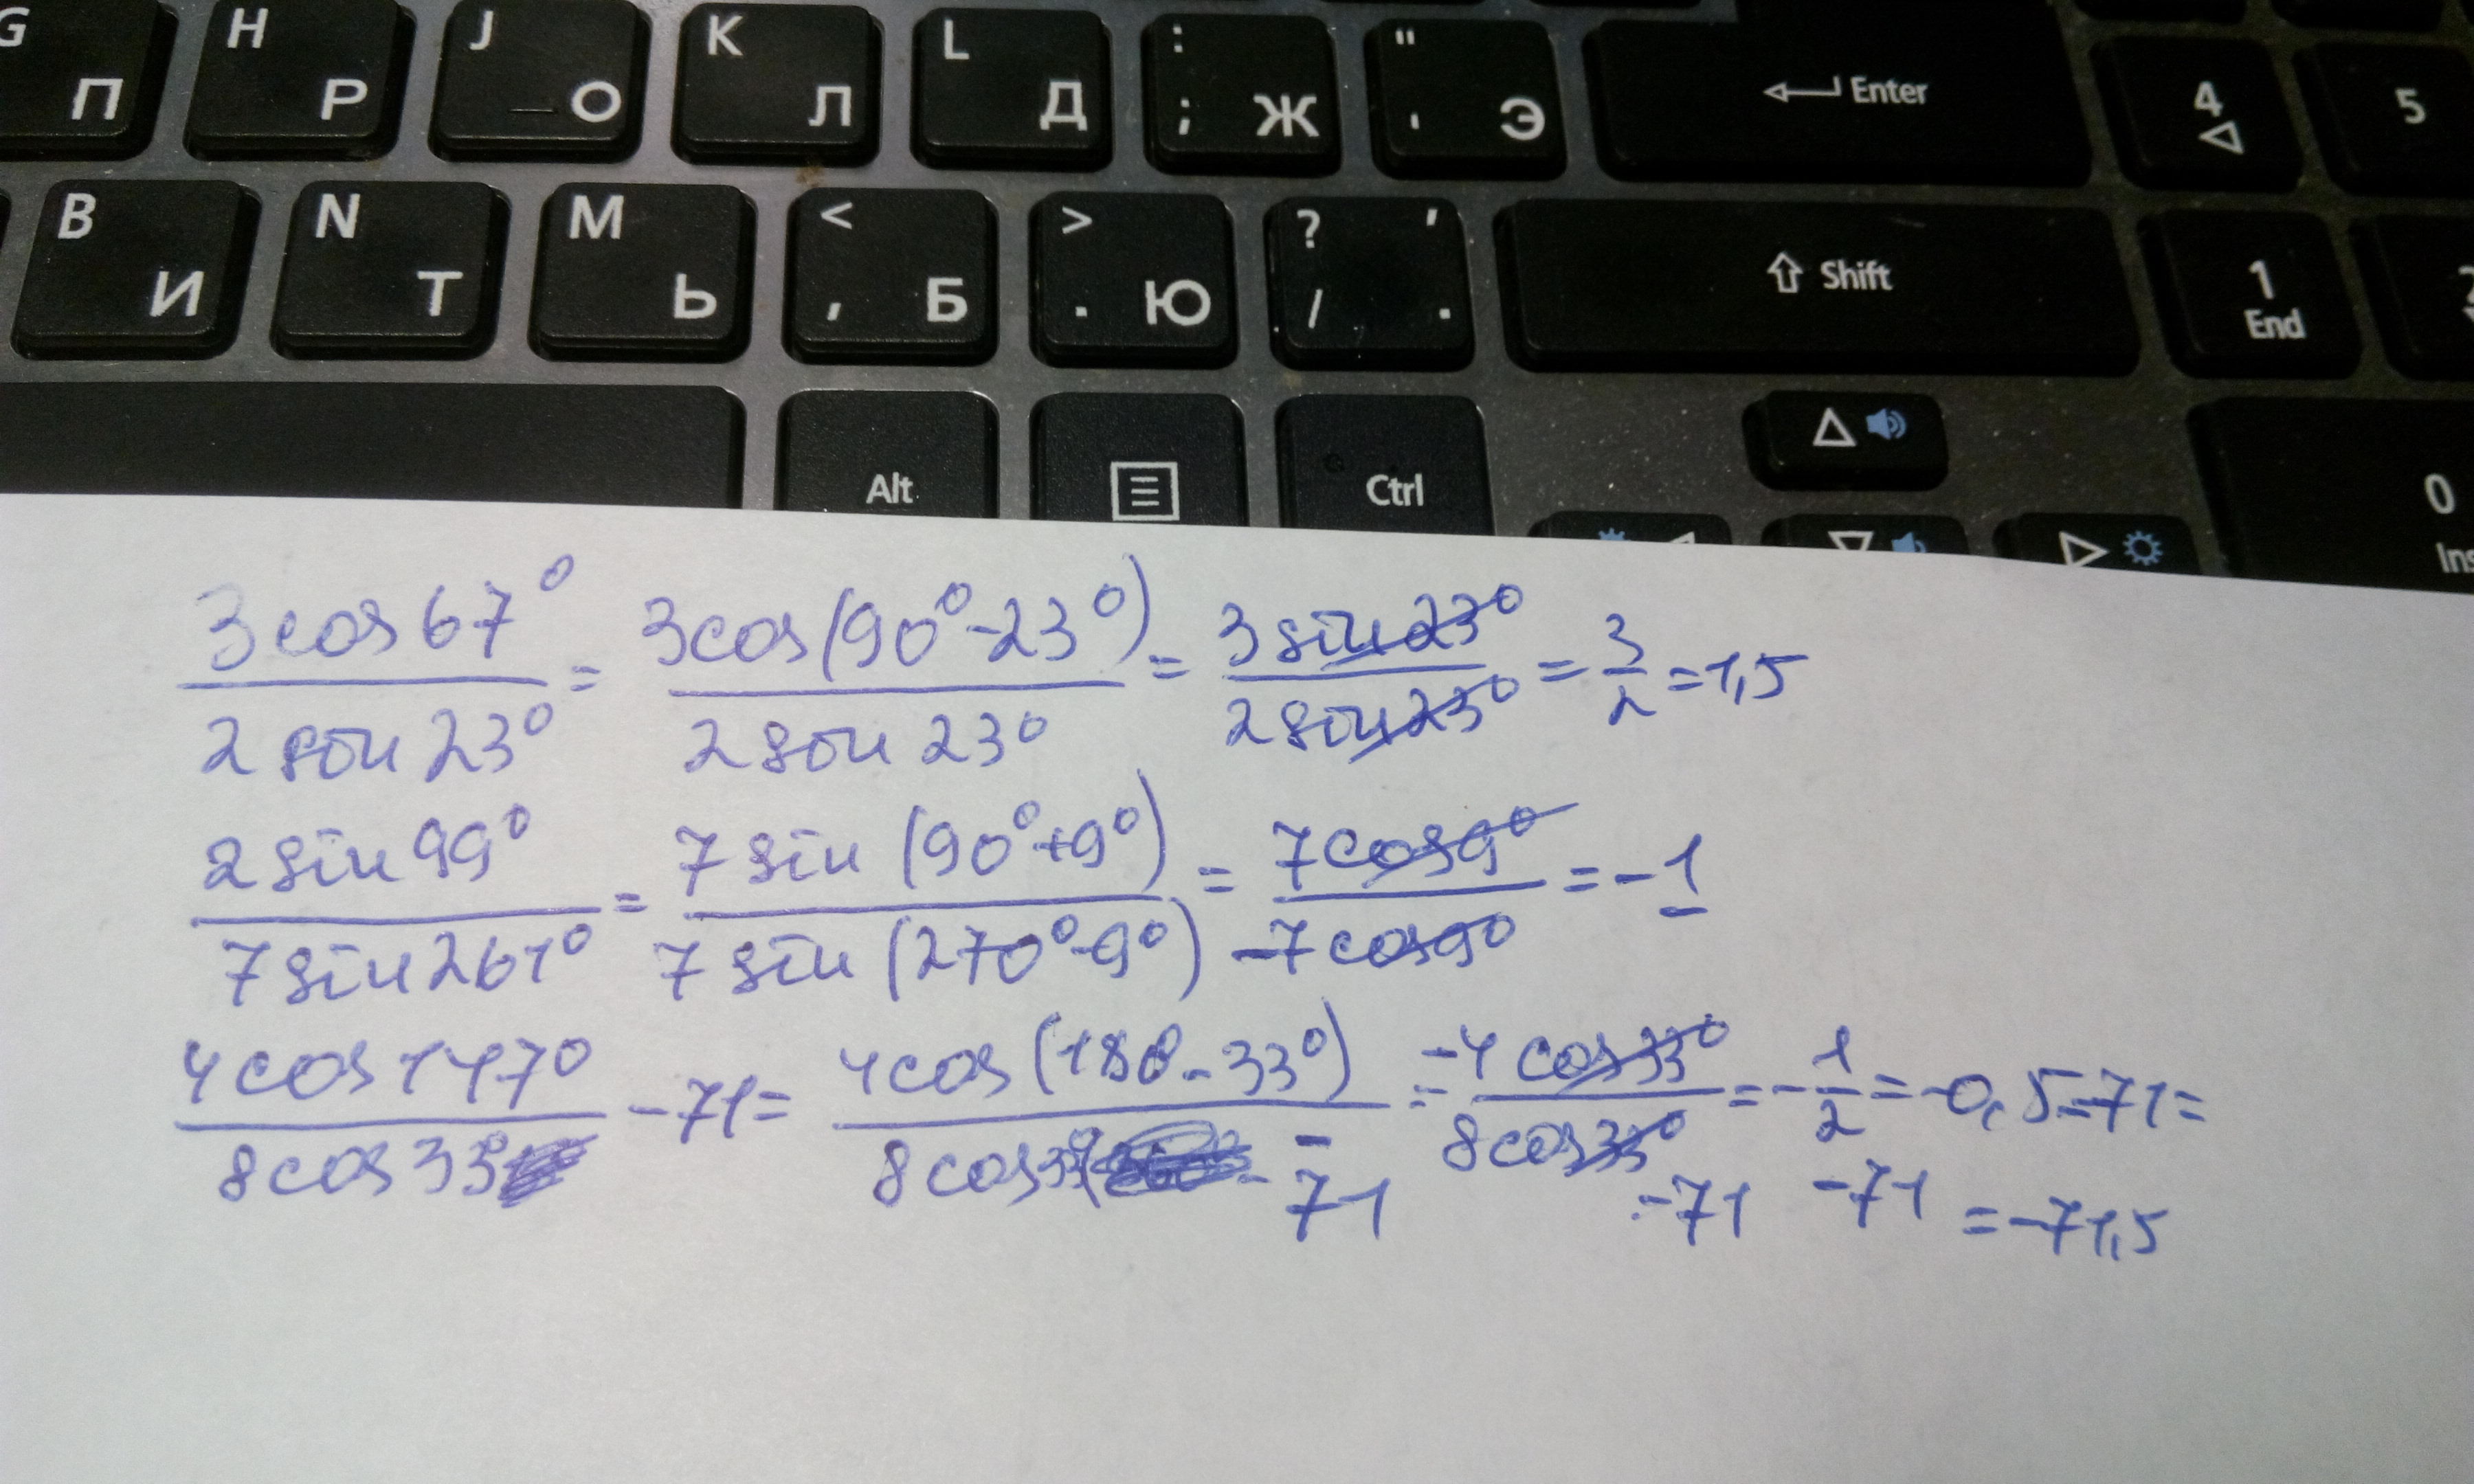 G П H Р J О K Л L Д : ; Ж " ' Э Enter 4 5
B И N Т M Ь < , Б > . Ю ? / ' . Shift 1 End 2
Alt Ctrl 0 Ins
3cos67° / 2sin23° = 3cos(90°-23°) / 2sin23° = 3sin23° / 2sin23° = 3/2 = 1,5
2sin99° / 7sin261° = 7sin(90°+9°) / 7sin(270°-9°) = 7cos9° / -7cos9° = -1
4cos147° / 8cos33° - 71 = 4cos(180-33°) / 8cos33° - 71 = -4cos33° / 8cos33° - 71 = -1/2 - 71 = -0,5-71=
= -71,5